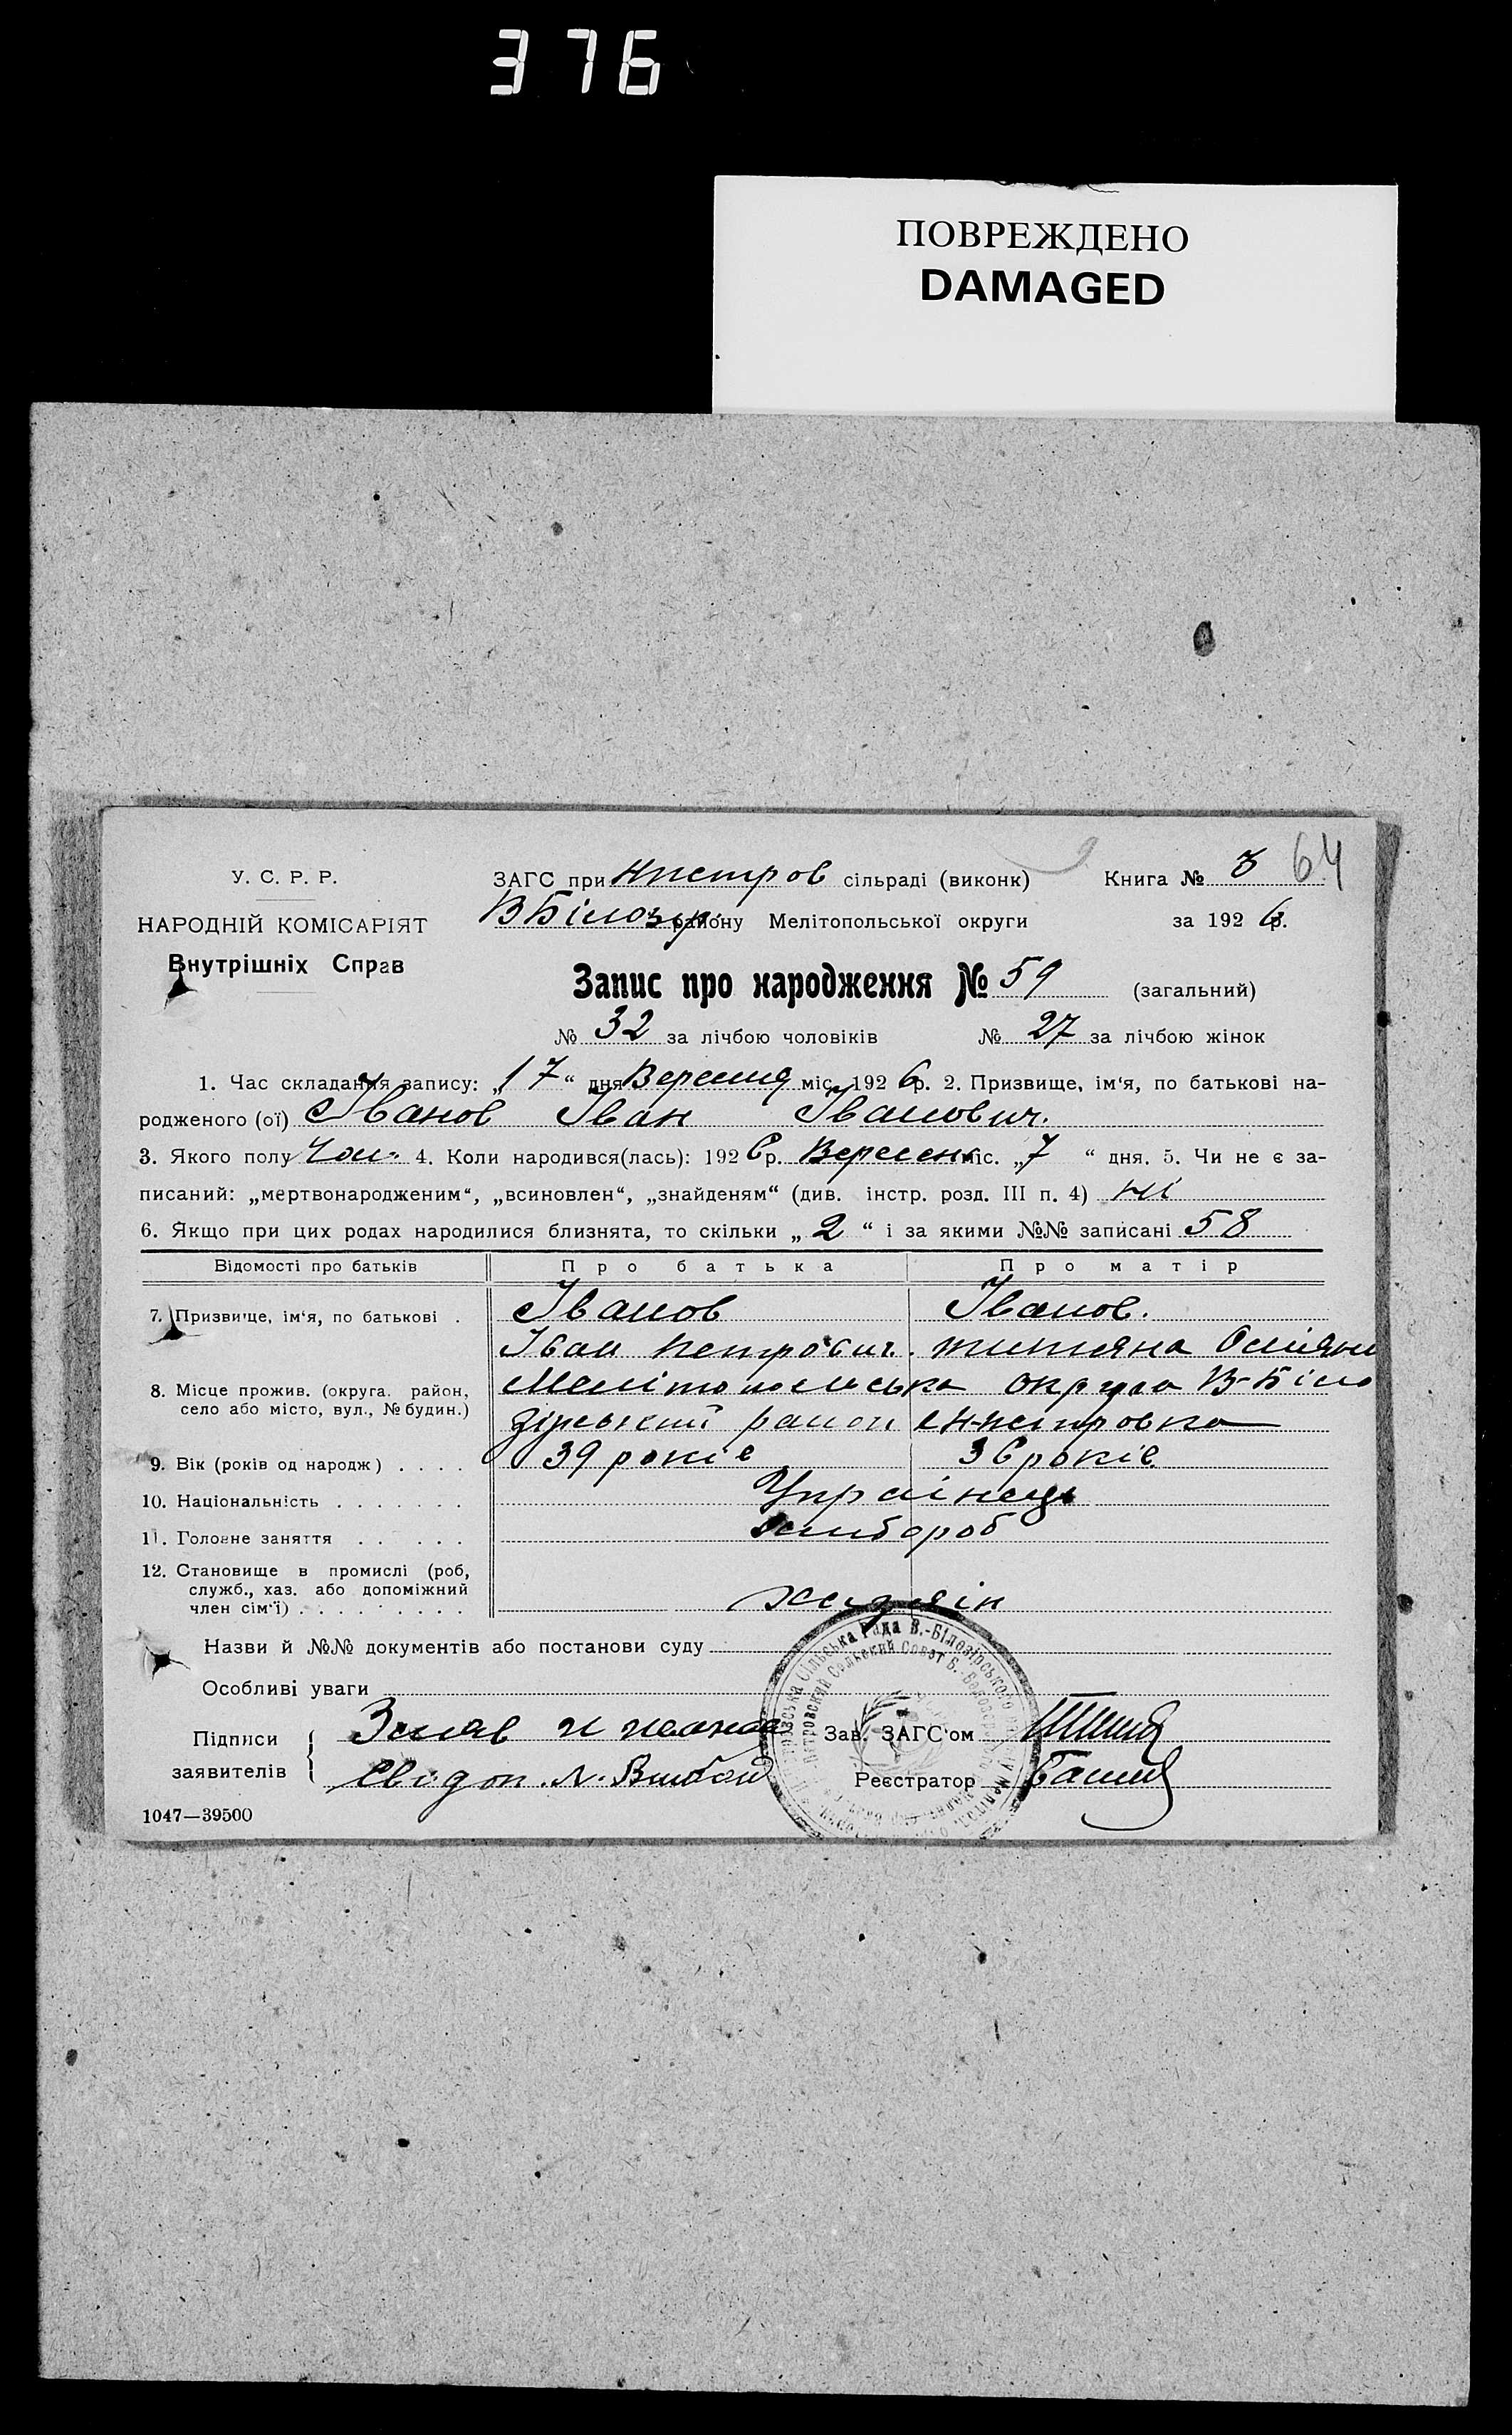 376
ПОВРЕЖДЕНО
DAMAGED
64
У. С. Р. Р.
НАРОДНІЙ КОМІСАРІЯТ
Внутрішніх Справ
ЗАГС при Нпетров сільраді (виконк)
Книга № 3
В Білозір. району Мелітопольської округи
за 1926 р.
Запис про народження № 59 (загальний)
№ 32 за лічбою чоловіків № 27 за лічбою жінок
1. Час складання запису: „17“ дня Вересня міс. 1926 р. 2. Призвище, ім‘я, по батькові на-
родженого (ої) Іванов Іван Іванович.
3. Якого полу Чол. 4. Коли народився(лась): 1926 р. Вересень міс. „7“ дня. 5. Чи не є за-
писаний: „мертвонародженим“, „всиновлен“, „знайденям“ (див. інстр. розд. III п. 4) ні
6. Якщо при цих родах народилися близнята, то скільки „2“ і за якими №№ записані 58
Відомості про батьків Про батька Про матір
7. Призвище, ім‘я, по батькові . Іванов Іванов.
Іван Петрович. титяна
8. Місце прожив. (округа, район, село або місто, вул., № будин.) Мелітопольська округа В-Біло
зірський район Н-петровка
9. Вік (років од народж) . . . . 39 років 36 років
10. Національність . . . . . . . Українець
11. Головне заняття . . . . . хлібороб
12. Становище в промислі (роб, служб., хаз. або допоміжний член сім‘ї) . . . . . . . . . хазяін
Назви й №№ документів або постанови суду
Особливі уваги
Підписи заявителів
Заяв
Свідоп.
Зав. ЗАГС‘ом
Реєстратор
1047—39500